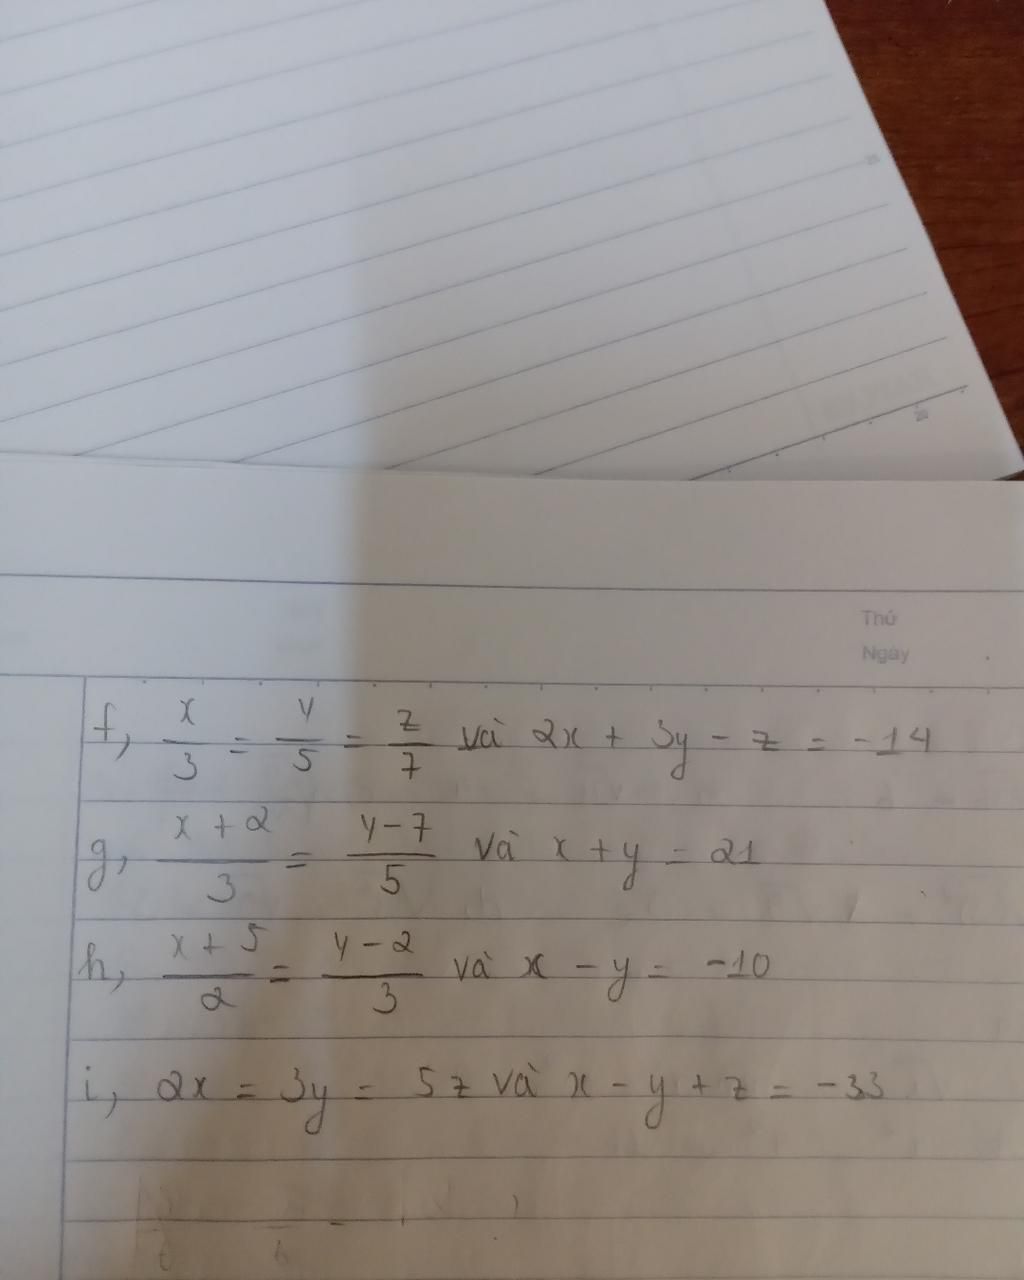 Thứ
Ngày
f, x/3 = y/5 = z/7 và 2x + 3y - z = -14
g, x + 2/3 = y - 7/5 và x + y = 21
h, x + 5/2 = y - 2/3 và x - y = -10
i, 2x = 3y = 5z và x - y + z = -33